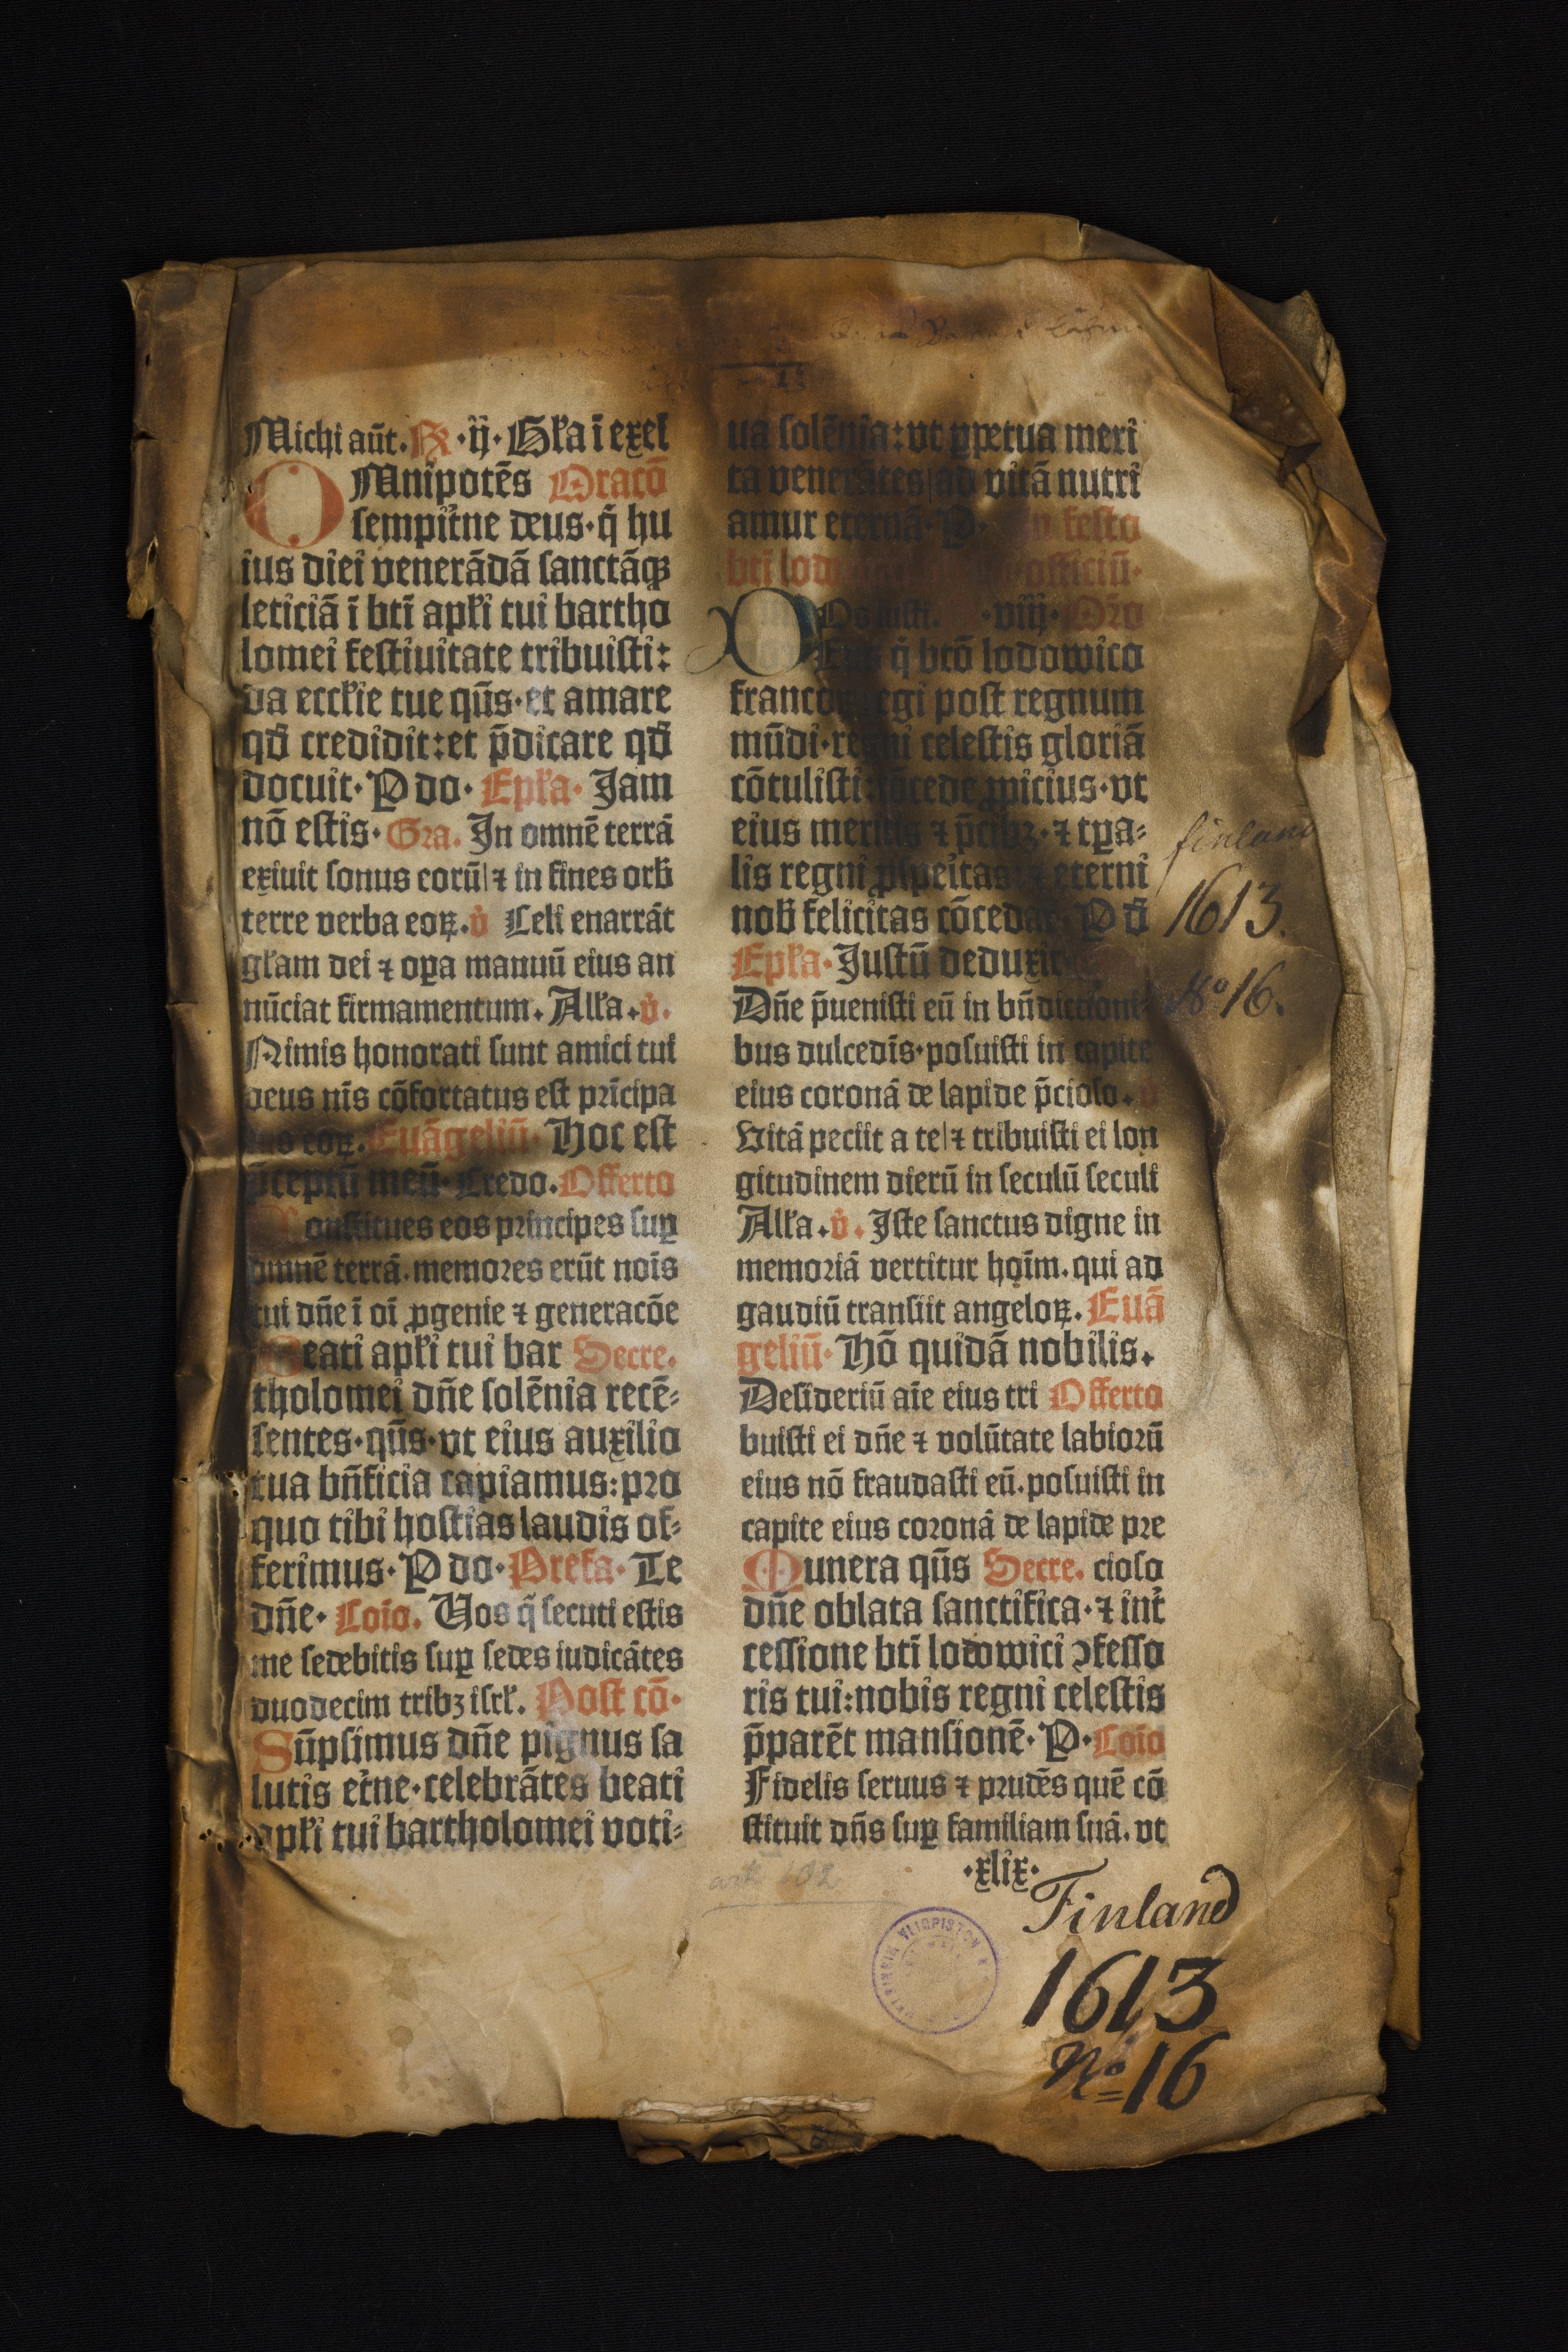 Michi aūt. R̃ .ij. Gl̄a ī excel
OMnipotēs Oracō
sempit̄ne deus· q̄ hu
ius diei venerādā sanctāqꝫ
leticiā ī bt̄i apl̄i tui bartho
lomei festiuitate tribuisti:
da eccl̄ie tue qūs· et amare
qđ credidit: et p̄dicare qđ
docuit· P do· Epl̄a· Jam
nō estis· Gra. In omnē terrā
exiuit sonus eorū| ⁊ in fines orb̄
terre verba eoꝝ. v̇ Celi enarrāt
gl̄am dei ⁊ oꝑa manuū eius an
nūciat firmamentum. All̄a. v̇.
Nimis honorati sunt amici tui
deus nīs cōfortatus est prīcipa
tus eoꝝ. Euāgeliū· Hoc est
p̄ceptū meū· Credo. Offerto
Constitues eos principes suꝑ
omnē terrā. memores erūt noīs
tui dn̄e ī oī ꝓgenie ⁊ generacōe
Beati apl̄i tui bar Secre.
tholomei dn̄e solēnia recē-
sentes· qūs· vt eius auxilio
tua bn̄ficia capiamus: pro
quo tibi hostias laudis of-
ferimus· P do· Prefa· Te
dn̄e· Cōio. Uos q̄ secuti estis
me sedebitis suꝑ sedes iudicātes
duodecim tribꝫ isrl̄. Post cō·
Sūpsimus dn̄e pignus sa
lutis et̄ne· celebrātes beati
apl̄i tui bartholomei voti-
ua solēnia: vt ꝑpetua meri
ta venerātes| ad vitā nutri
amur eternā· P· In festo
bt̄i lod officiū·
Os iusti. ·viij· Or̄o
DEus q̄ btō lodowico
francoꝝ regi post regnum
mūdi· regni celestis gloriā
cōtulisti: cōcede ꝓpicius· vt
eius meritis ⁊ p̄cibꝫ· ⁊ tꝑa-
lis regni ꝓsꝑeitas: ⁊ eterni
nob̄ felicitas cōcedat· P đ
Epl̄a· Justū deduxit
Dn̄e p̄uenisti eū in bn̄diction-
bus dulcedīs· posuisti in capite
eius coronā de lapide p̄cioso. v̇
Vitā peciit a te| ⁊ tribuisti ei lon
gitudinem dierū in seculū seculi
All̄a. v̇. Iste sanctus digne in
memoriā vertitur hoīm. qui ad
gaudiū transiit angeloꝝ. Euā
geliū· Hō quidā nobilis.
Desideriū aīe eius tri Offerto
buisti ei dn̄e ⁊ volūtate labiorū
eius nō fraudasti eū. posuisti in
capite eius coronā de lapide pre
Munera qūs Secre. cioso
dn̄e oblata sanctifica· ⁊ int̄
cessione bt̄i lodowici ꝯfesso
ris tui: nobis regni celestis
p̄parēt mansionē· P· Cōio
Fidelis seruus ⁊ prudēs quē cō
stituit dn̄s suꝑ familiam suā. vt
·xlix·
finland
1613.
No 16.
Finland
1613
No 16